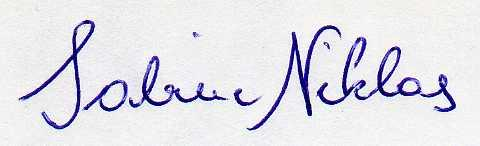 Sabine Niklas